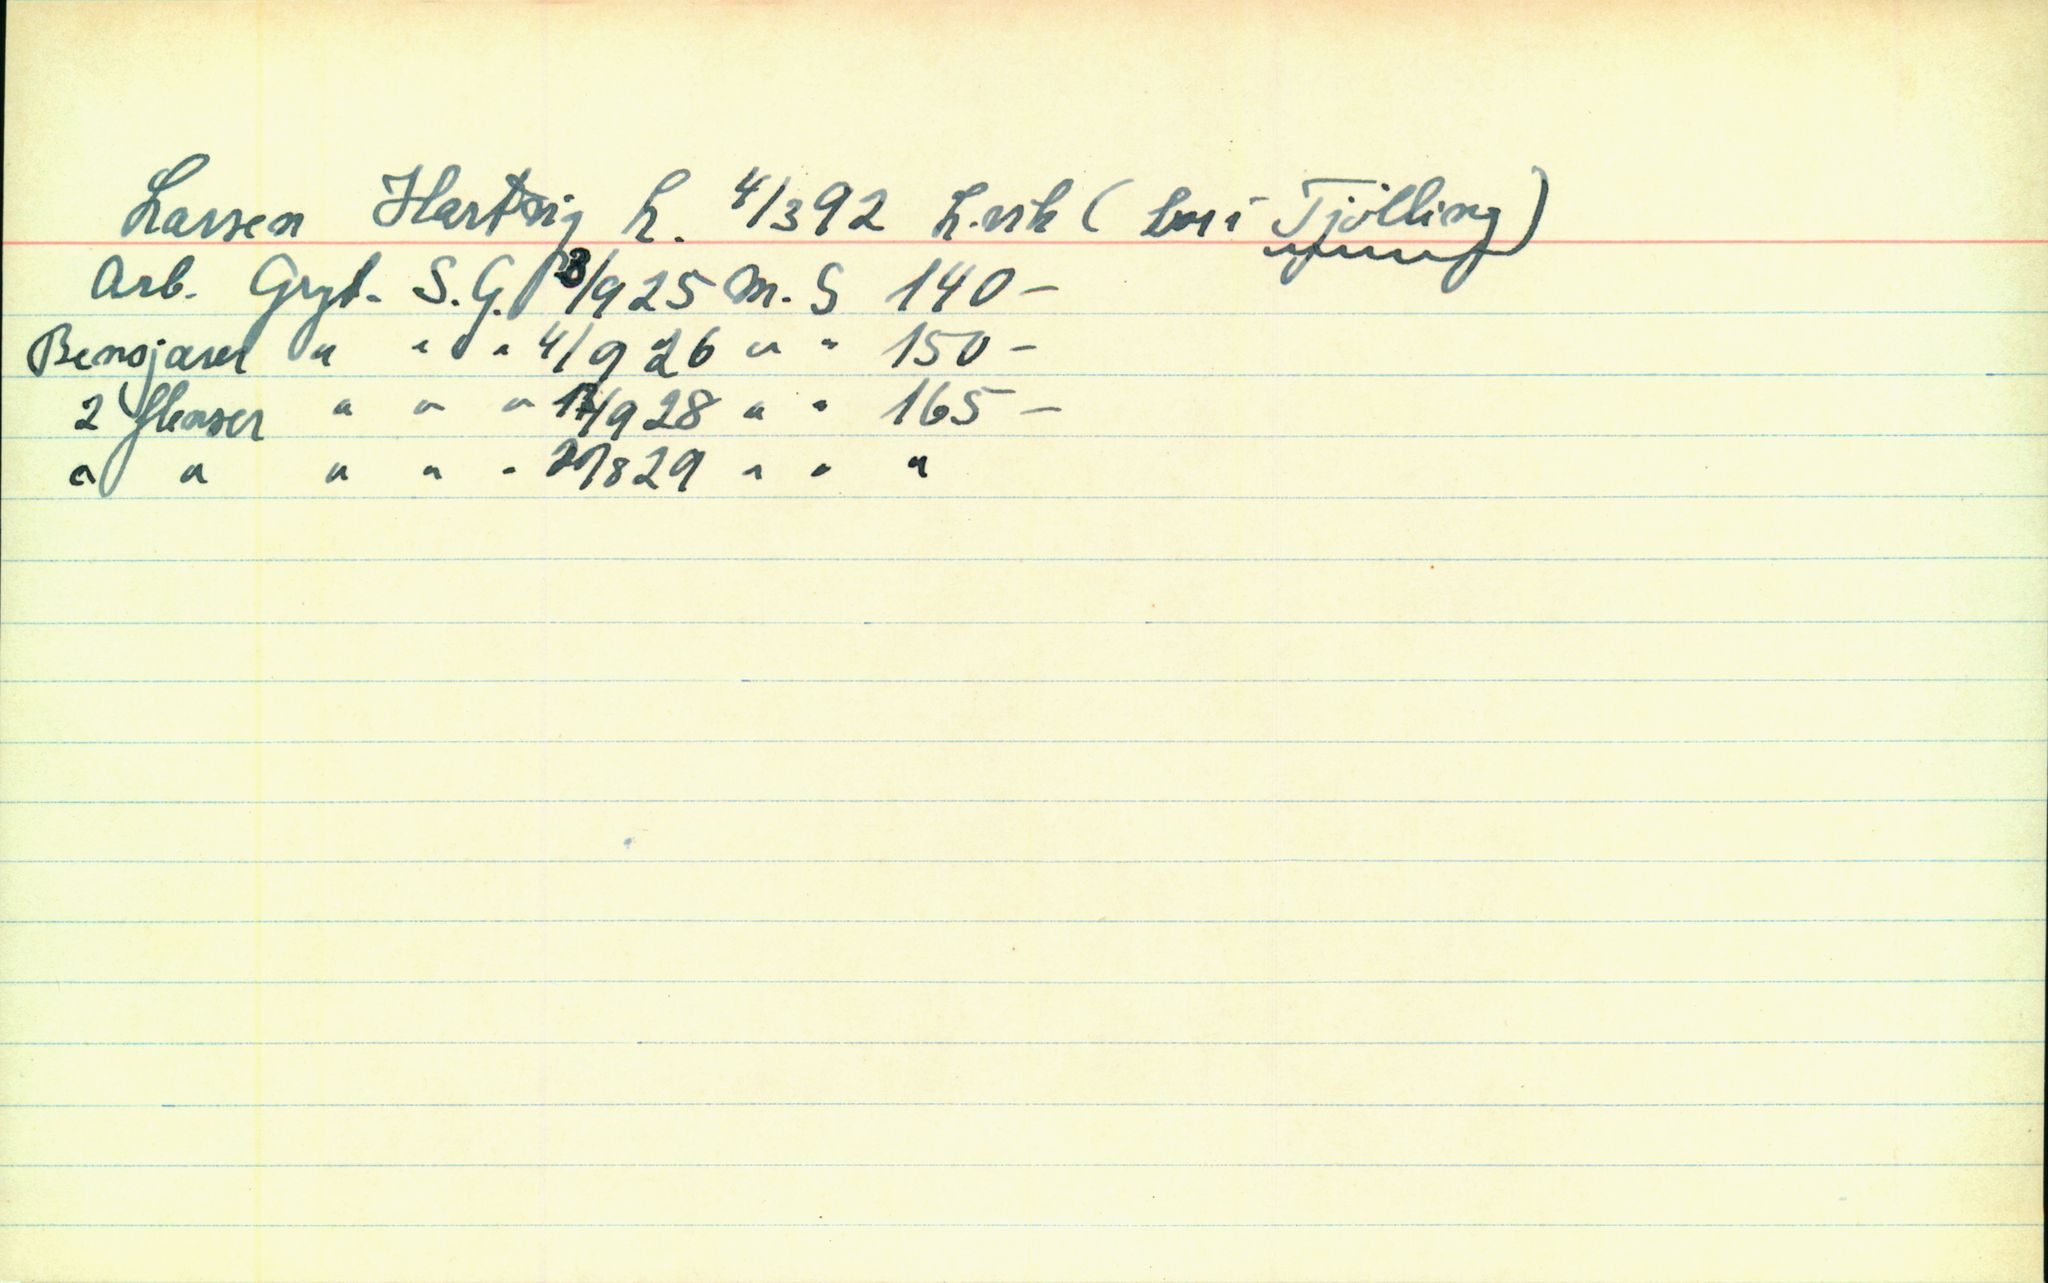 Larsen Hartvig L. 4/3 92 L.vik (bor i Tjölling)
Arb. Gryt. S.G. 3/9 25 M.S 140 -
Bensjauer " " " 4/9 26 " " 150 -
2 flenser " " " 17/9 28 " " 165 -
" " " " " 27/8 29 " " "